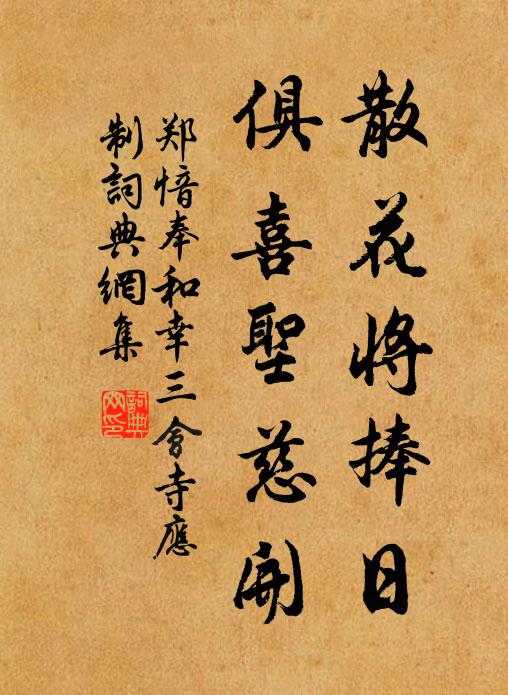 散花将捧日
俱喜聖慈開
郑愔奉和幸三會寺應
制詞典網集
詞典
网印